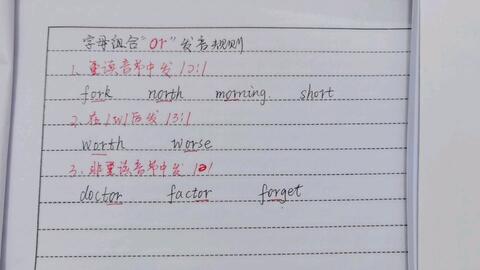 字母组合"or"发音规则
1、重读音节中发/ɔ:/
fork north morning short
2、在/w/后发/ɜ:/
worth worse
3、非重读音节中发/ə/
doctor factor forget